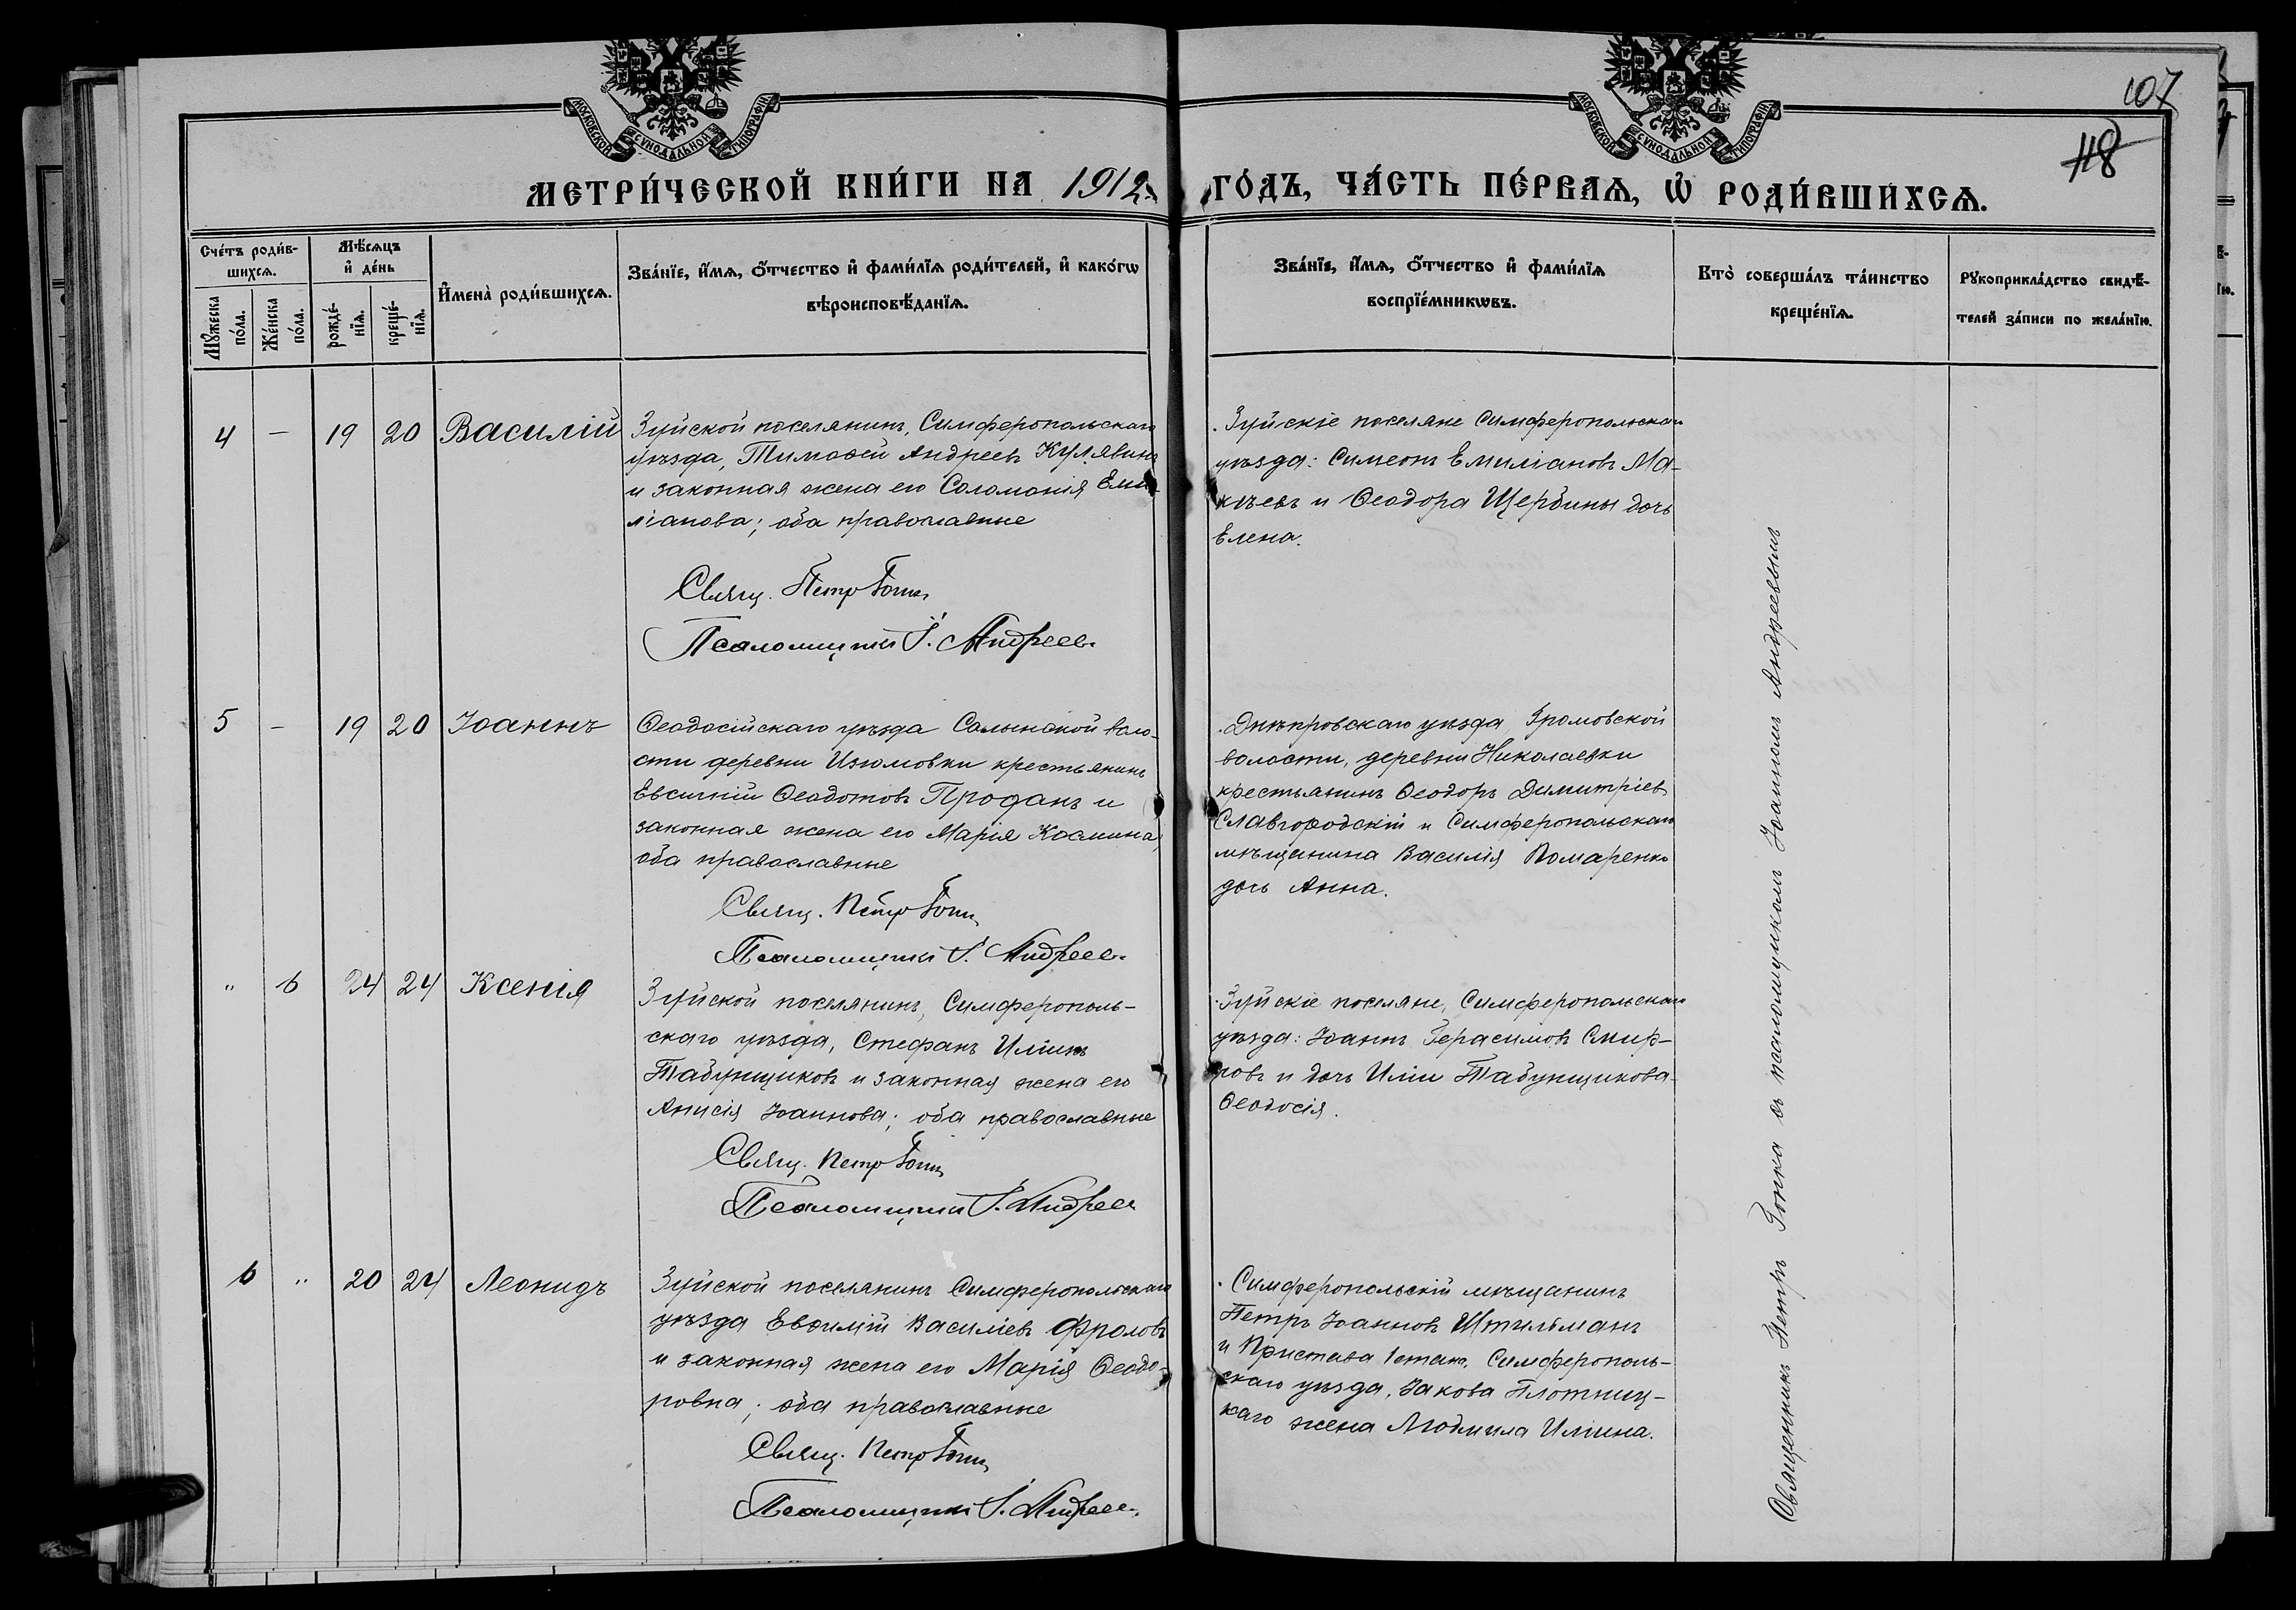 МОСКОВСКОЙ СѴНОДАЛЬНОЙ ТИПОГРАФІИ
МОСКОВСКОЙ СѴНОДАЛЬНОЙ ТИПОГРАФІИ
107
118
МЕТРИ́ЧЕСКОЙ КНИ́ГИ НА 1912
ГО́ДЪ, ЧА́СТЬ ПЕ́РВАѦ, Ѽ РОДИ́ВШИХСѦ.
Сче́тъ роди́в-
шихсѧ.
Мꙋ́жеска
по́ла.
Же́нска
по́ла.
Мѣ́сѧцъ
и҆ де́нь
рожде́-
нїѧ.
креще́-
нїѧ.
И҆мена̀ роди́вшихсѧ.
Зва́нїе, и҆́мѧ, ѻ҆́тчество и҆ фами́лїѧ роди́телей, и҆ како́гѡ
вѣроисповѣ́данїѧ.
Зва́нїе, и҆́мѧ, ѻ҆́тчество и҆ фами́лїѧ
воспрїе́мникѡвъ.
Кто̀ соверша́лъ та́инство
креще́нїѧ.
Рꙋкоприкла́дство свидѣ́-
телей за́писи по жела́нїю.
4 — 19 20 Василій
Зуйской поселянинъ, Симферопольскаго
уѣзда, Тимоѳей Андреевъ Кулявинъ
и законная жена его Соломонія Еми-
ліанова; оба православные
Свящ. Петръ
Псаломщикъ І. Андреевъ
Зуйскіе поселяне Симферопольскаго
уѣзда: Симеонъ Емиліановъ Ма-
кѣевъ и Ѳеодора Щербины дочь
Елена.
5 - 19 20 Іоаннъ
Ѳеодосійскаго уѣзда Салынской воло-
сти деревни Изюмовки крестьянинъ
Евсигній Ѳеодотовъ Проданъ и
законная жена его Марія Космина,
оба православные
Свящ. Петръ
Псаломщикъ І. Андреевъ
Днѣпровскаго уѣзда Громовской
волости, деревни Николаевки
крестьянинъ Ѳеодоръ Димитріевъ
Славгородскій и Симферопольскаго
мѣщанина Василія Помаренко
дочь Анна.
" 6 24 24 Ксенія
Зуйской поселянинъ, Симферополь-
скаго уѣзда, Стефанъ Иліинъ
Табунщиковъ и законная жена его
Анисія Іоаннова; оба православные
Свящ. Петръ
Псаломщикъ І. Андреевъ
Зуйскіе поселяне, Симферопольскаго
уѣзда: Іоаннъ Герасимовъ Смир-
новъ и дочь Иліи Табунщикова
Ѳеодосія.
6 " 20 24 Леонидъ
Зуйской поселянинъ Симферопольскаго
уѣзда Евѳимій Василіевъ Фроловъ
и законная жена его Марія Ѳеодо-
ровна; оба православные
Свящ. Петръ
Псаломщикъ І. Андреевъ
Симферопольскій мѣщанинъ
Петръ Іоанновъ Штильманъ
и Пристава 1 стана, Симферополь-
скаго уѣзда, Іакова Плотниц-
каго жена Людмила Иліина.
Священникъ Петръ Гопка съ псаломщикомъ Іоанномъ Андреевымъ